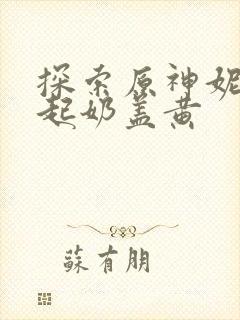 探索原神妮
起奶盖黄
蘇有朋